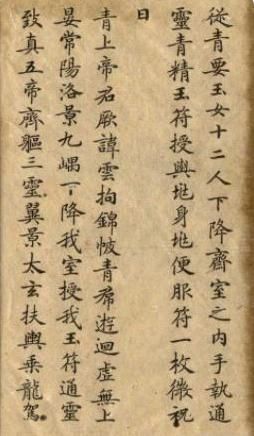 從青要玉女十二人下降齊室之内手執通
靈青精玉符授與兆身兆便服符一枚微祝
曰
青上帝君厥諱雲拘錦帔青帬遊迴虛無上
晏常陽洛景九嵎下降我室授我玉符通靈
致真五帝齊軀三靈翼景太玄扶輿乘龍駕